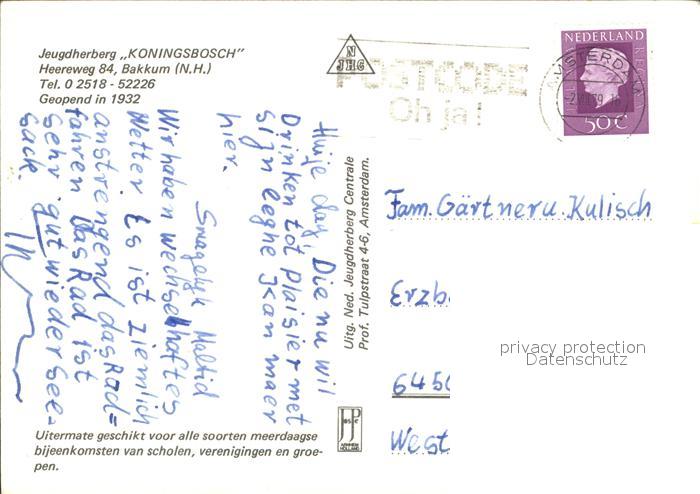 Jeugdherberg „KONINGSBOSCH”
Heereweg 84, Bakkum (N.H.)
Tel. 0 2518 - 52226
Geopend in 1932
N
JHC
POSTCODE
Oh ja!
NEDERLAND
AMSTERDAM
50 C
Huije dag, Die nu wil
Drinken tot plaisier met
sijn eeghe Ikan maer
hier.
Smagelyk Maltid
Wir haben wechselhaftes
Wetter. Es ist ziemlich
anstrengend das Rad=
fahren. Das Rad ist
sehr gut wieder See-
sack.
Uitg. Ned. Jeugdherberg Centrale
Prof. Tulpstraat 4-6, Amsterdam.
Fam. Gärtner u. Kulisch
Erzb
645
West
privacy protection
Datenschutz
JosPe
ARNHEM
HOLLAND
Uitermate geschikt voor alle soorten meerdaagse
bijeenkomsten van scholen, verenigingen en groe-
pen.